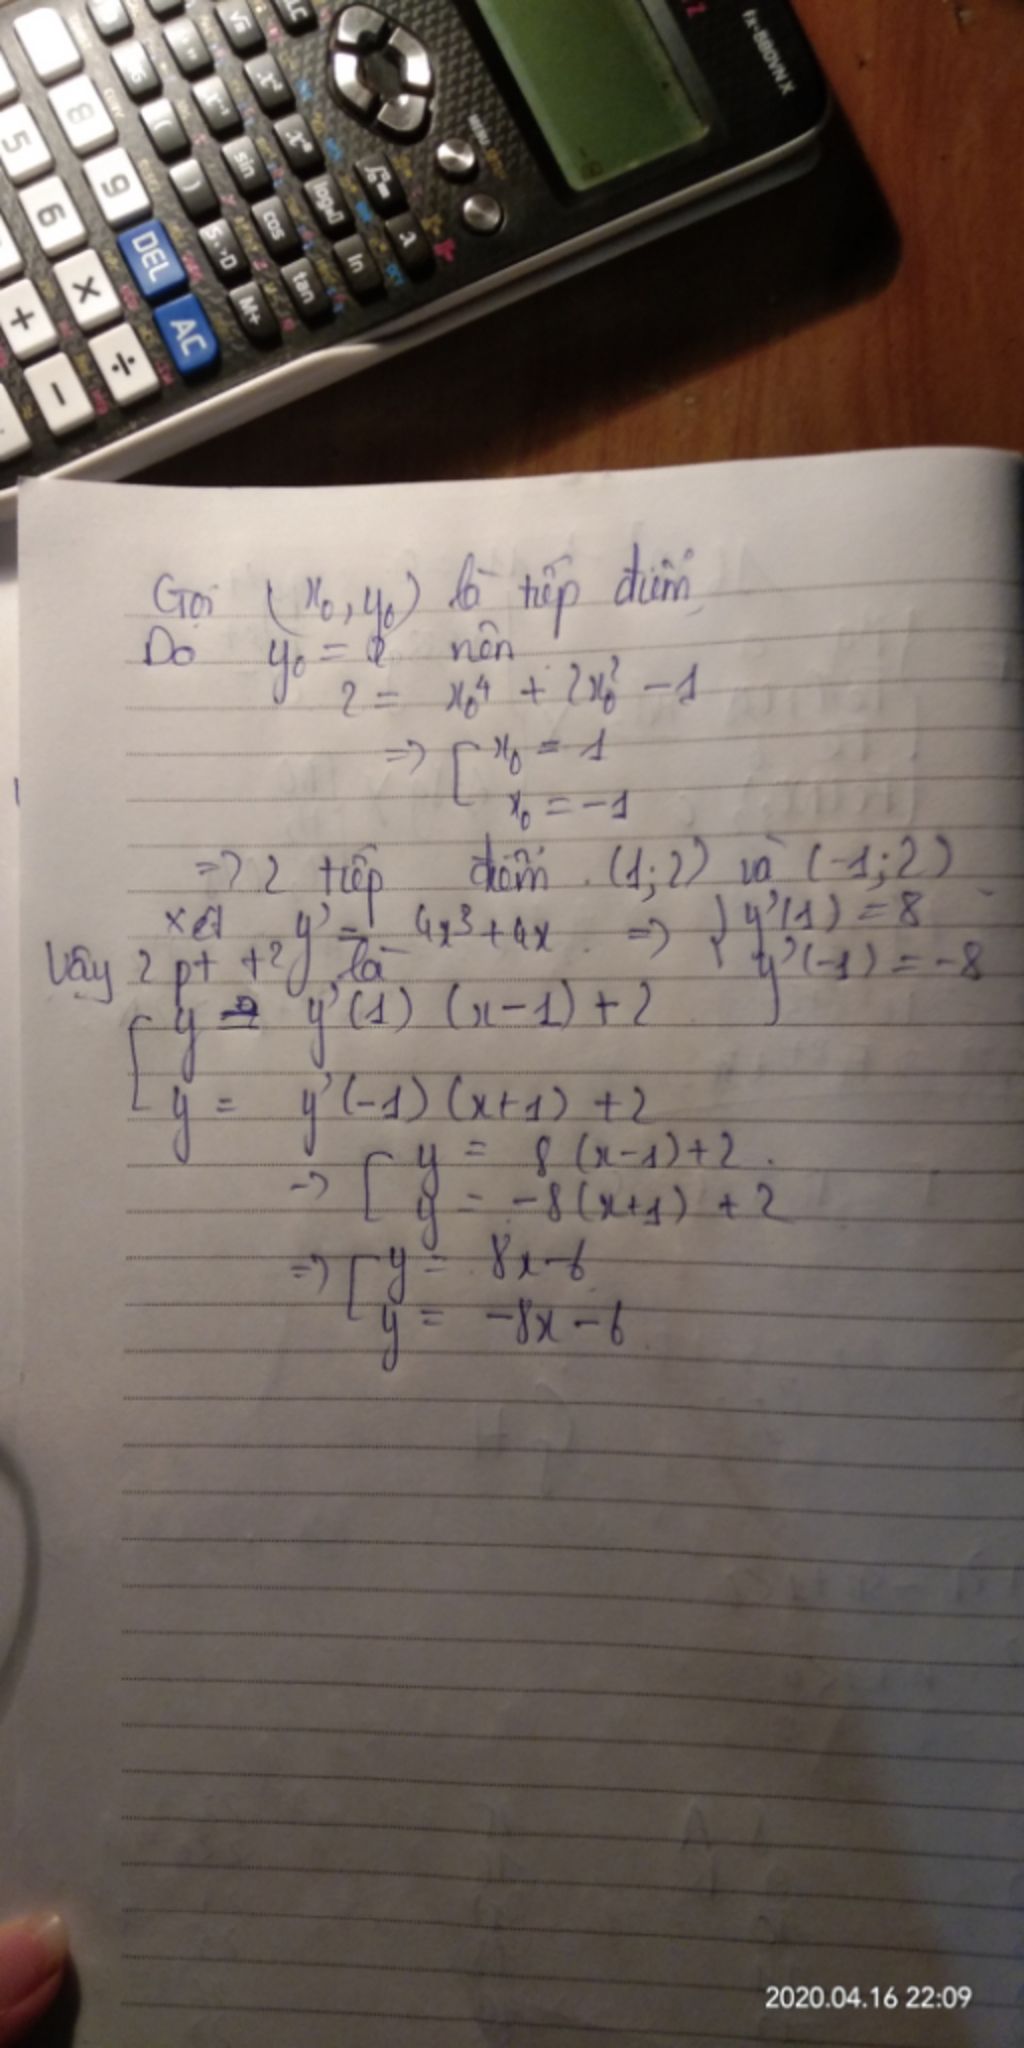 fx-580VN X
MENU
x²
sin
cos
tan
ln
M+
8
5
9
6
DEL
AC
×
÷
+
−
Gọi (x₀, y₀) là tiếp điểm
Do y₀ = 2 nên
2 = x₀⁴ + 2x₀² − 1
=> [ x₀ = 1
x₀ = −1
=> 2 tiếp điểm (1; 2) và (−1; 2)
xét y' = 4x³ + 4x => { y'(1) = 8
y'(−1) = −8
Vậy 2 pt t² là
[ y = y'(1) (x−1) + 2
y = y'(−1) (x+1) + 2
→ [ y = 8 (x−1) + 2
y = −8(x+1) + 2
=> [ y = 8x − 6
y = −8x − 6
2020.04.16 22:09